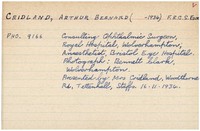 CRIDLAND, ARTHUR BERNARD ( -1936) F.R.C.S. Edin
PHO. 9166 Consulting Ophthalmic Surgeon,
Royal Hospital, Wolverhampton,
Anaesthetist, Bristol Eye Hospital.
Photograph: Bennett Clark,
Wolverhampton.
Presented by: Mrs Cridland,
Rd., Tettenhall, Staffs. 16.11.1936.